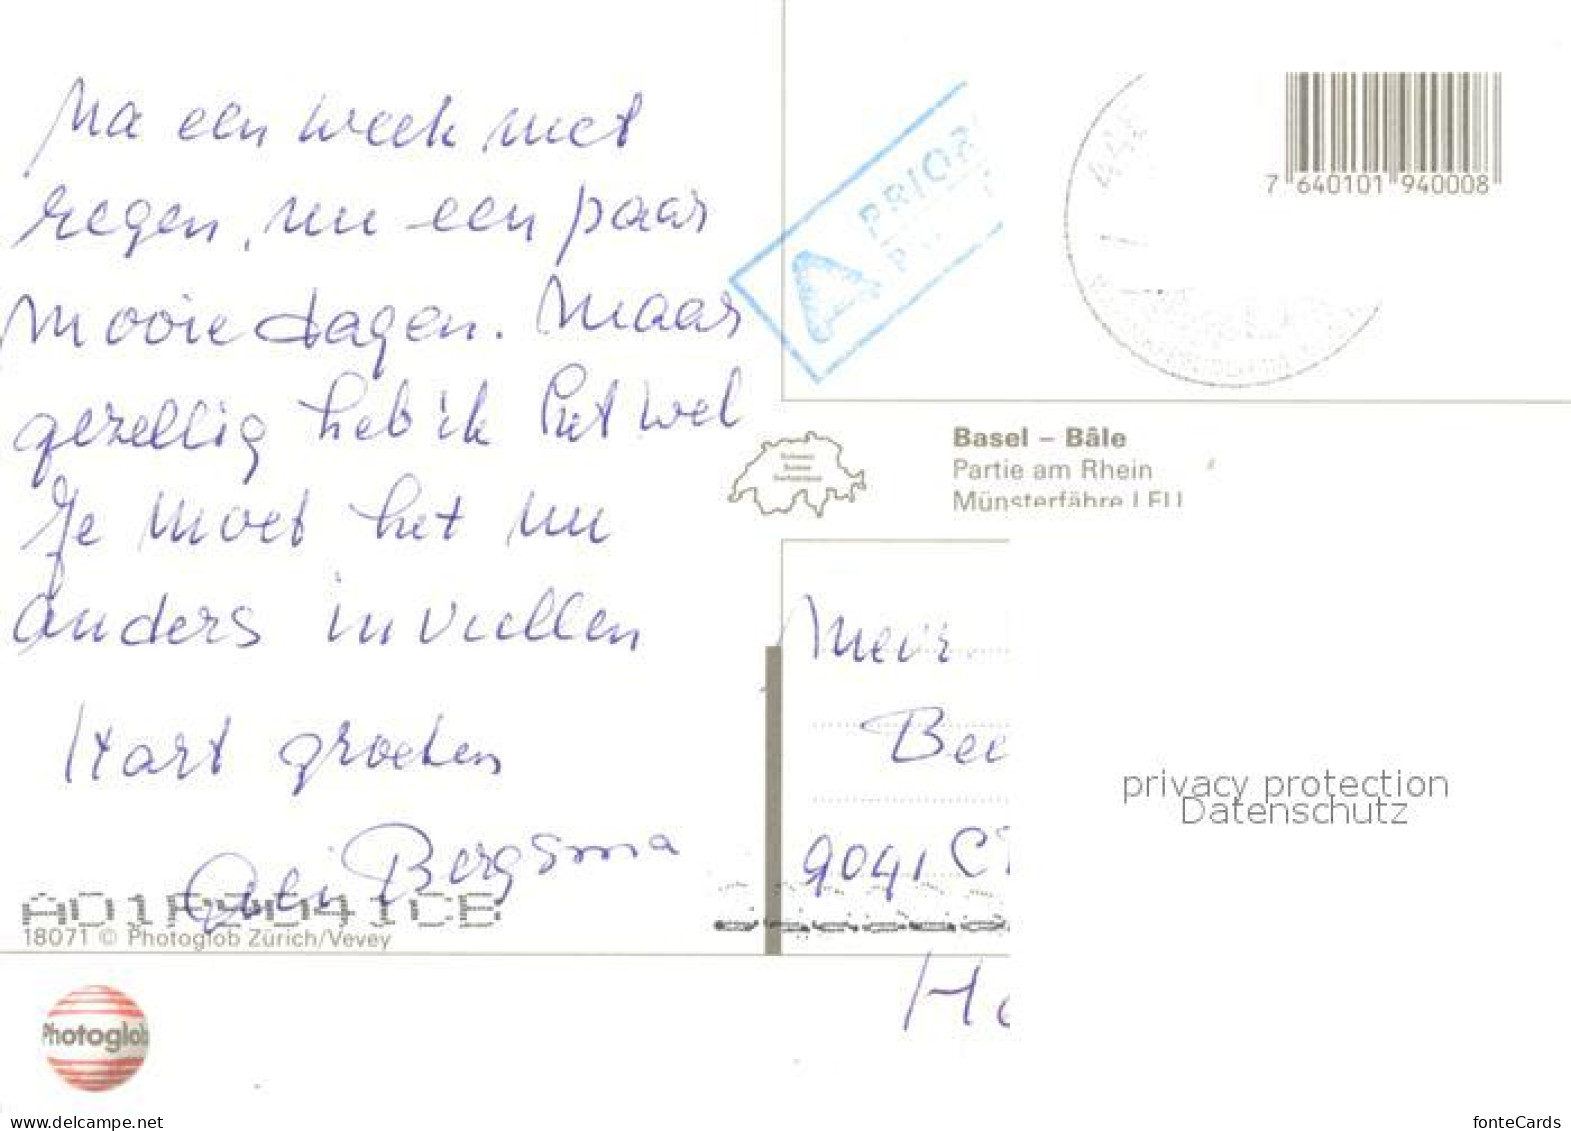 Na een week met
regen, nu een paar
mooie dagen. Maar
gezellig heb ik het wel
Je moet het nu
anders invullen
Hart groeten
Bergsma
18071 © Photoglob Zürich/Vevey
Photoglob
A PRIOR
7 640101 940008
Schweiz
Suisse
Switzerland
Basel – Bâle
Partie am Rhein
Münsterfähre LEU
Mevr.
Bee
9041 C
H
privacy protection
Datenschutz
www.delcampe.net
fonteCards